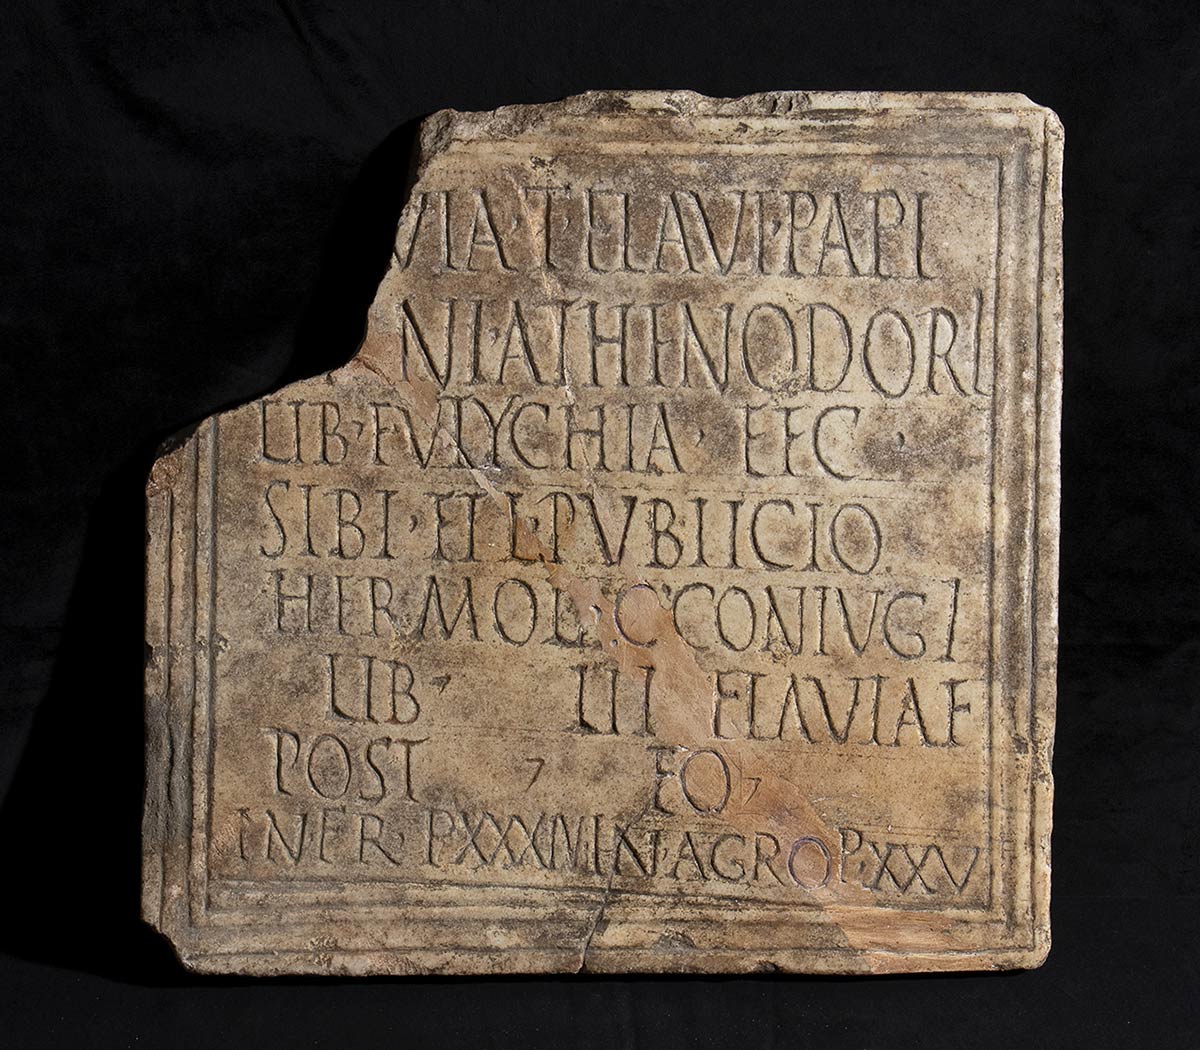 VIA·T·FLAVI·PAPI
NI·ATHENODORI
LIB·EUTYCHIA·FEC·
SIBI·ET·L·PVBLICIO
HERMOL·C·CONIVGI
LIB· LII FLAVIAE
POST , EO,
IN·FR·P·XXXIV·IN·AGRO·P·XXV